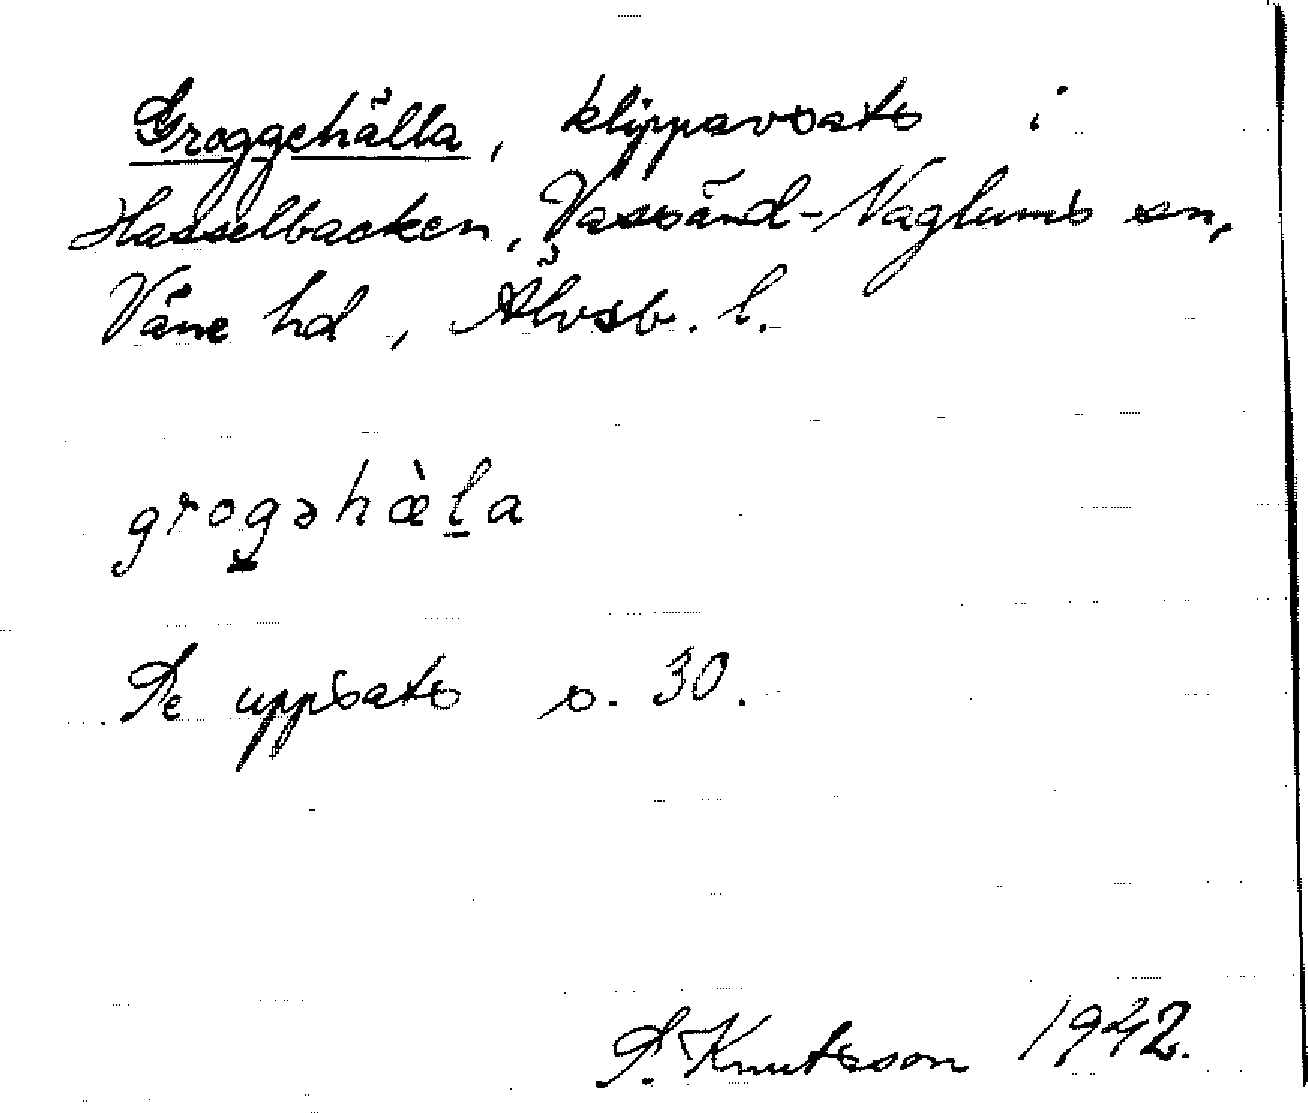 Groggehälla, klippavsats i
Hasselbacken, Vassänd-Naglums sn,
Väne hd, Älvsb. l.
grogəhæ̀l̠a
Se uppsats s. 30.
S. Knutsson 1942.